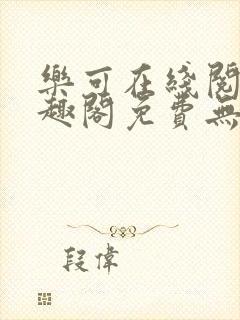 樂可在綫閱
趣閣免費無
段偉